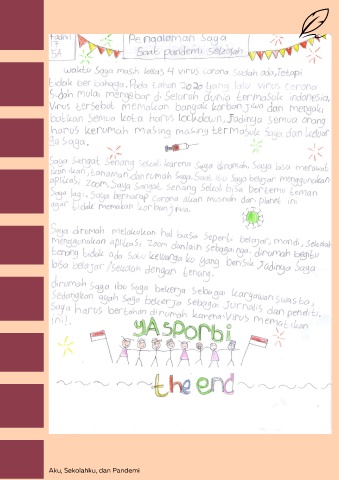 Fadhil
17
5A
Pengalaman Saya
Saat pandemi sekolah
waktu saya masih kelas 4 virus corona sudah ada, tetapi
tidak berbahaya. Pada tahun 2020 yang lalu virus corona
sudah mulai menyebar di seluruh dunia termasuk indonesia,
virus tersebut memakan banyak korban jiwa dan mengaki
batkan semua kota harus lockdown, Jadinya semua orang
harus kerumah masing masing termasuk saya dan keluar
ga saya.
Saya sangat senang sekali karena saya dirumah. Saya bisa merawat
ikan ikan, tanaman dan rumah saya. Saat itu saya belajar menggunakan
aplikasi, zoom. Saya sangat senang sekali bisa bertemu teman
saya lagi. Saya berharap corona akan musnah dari planet ini
agar tidak memakan korban jiwa.
Saya dirumah melakukan hal biasa seperti belajar, mandi, sekolah
menggunakan aplikasi, zoom dan lain sebagainya. dirumah begitu
tenang tidak ada satu keluarga ku yang berisik Jadinya saya
bisa belajar /sekolah dengan tenang.
dirumah saya ibu saya bekerja sebagai karyawan swasta,
sedangkan ayah saya bekerja sebagai jurnalis dan peneliti.
Saya harus bertahan dirumah karena virus mematikan
ini!.
YASPORBI
the end
Aku, Sekolahku, dan Pandemi